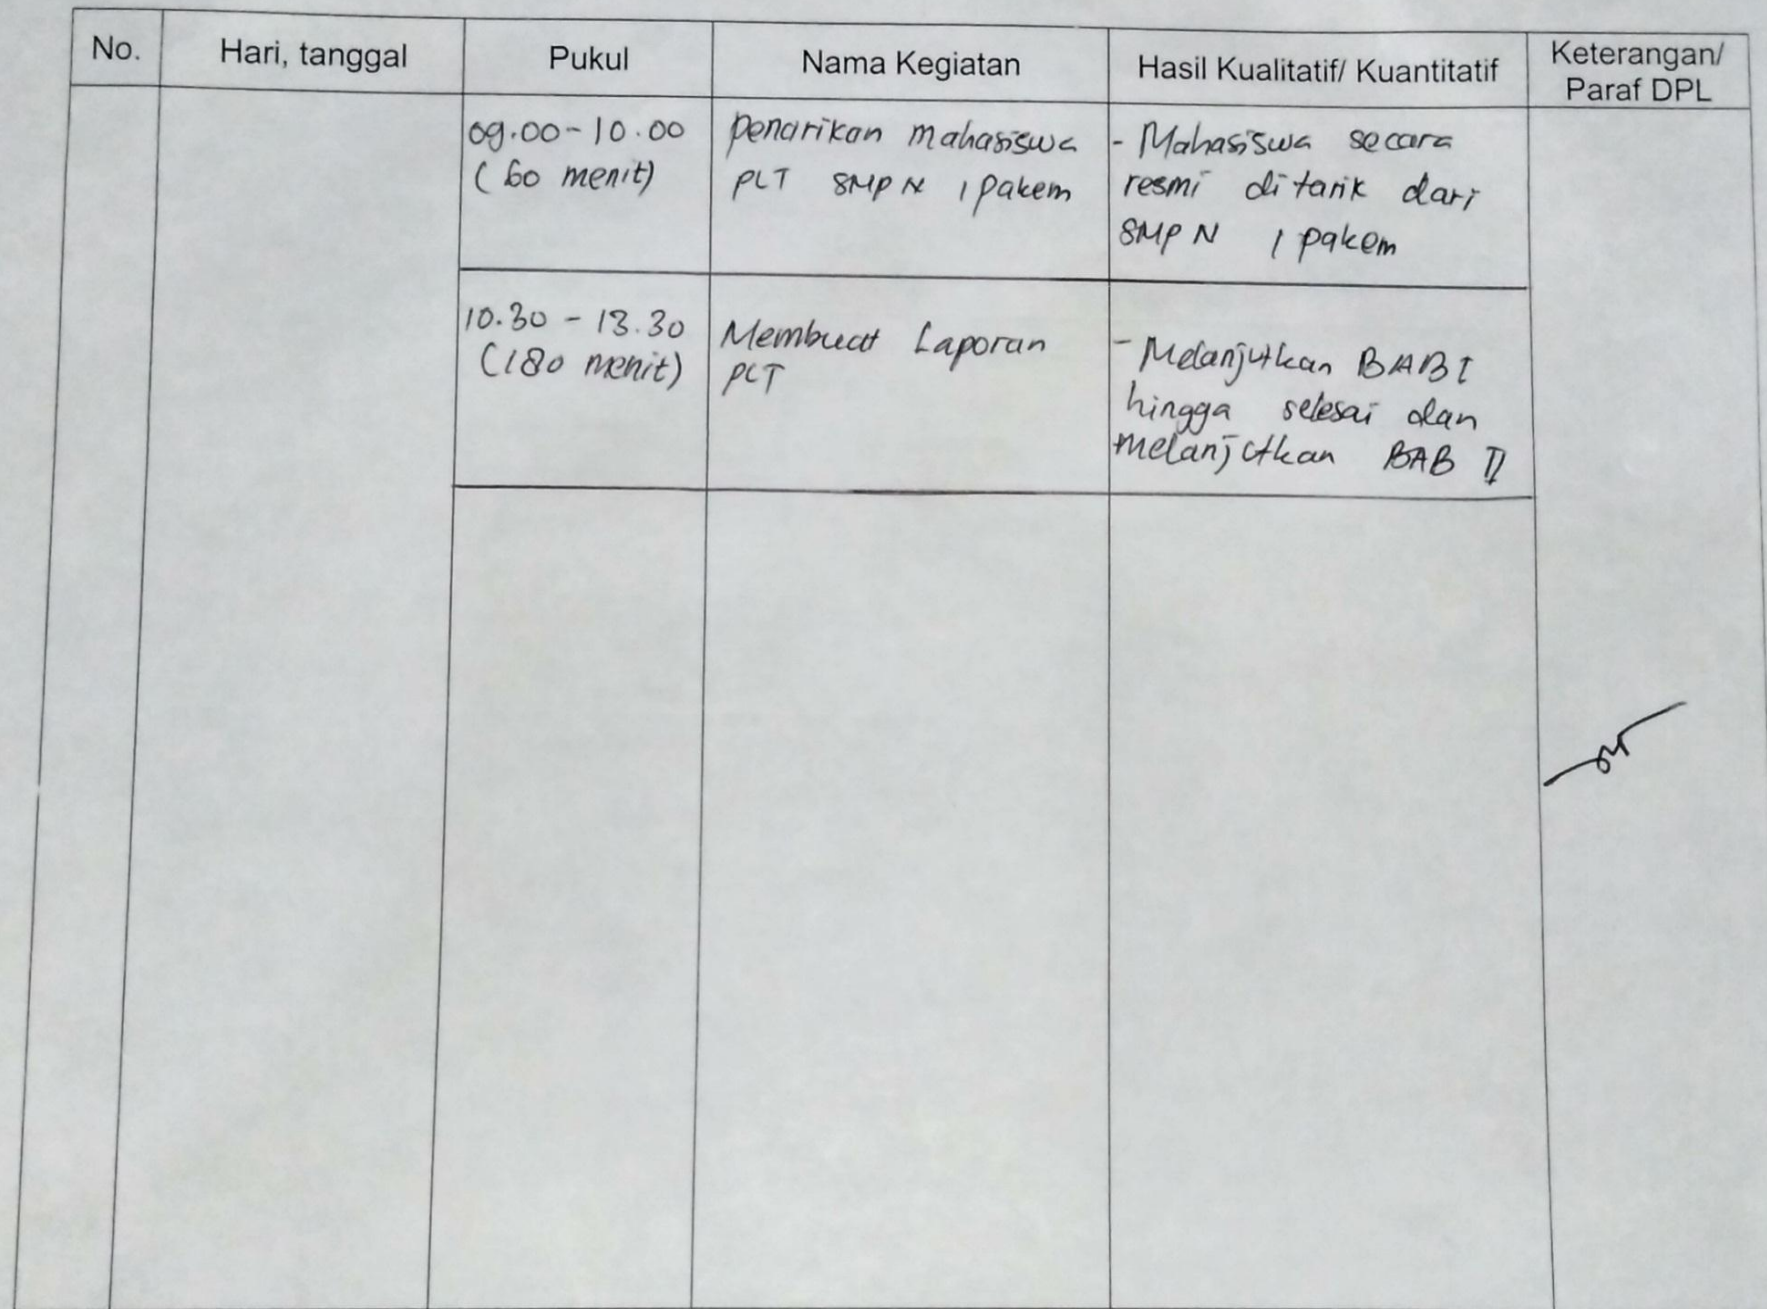 No.
Hari, tanggal
Pukul
Nama Kegiatan
Hasil Kualitatif/ Kuantitatif
Keterangan/
Paraf DPL
09.00 - 10.00
(60 menit)
Penarikan mahasiswa
PLT SMP N 1 Pakem
- Mahasiswa secara
resmi ditarik dari
SMP N 1 Pakem
10.30 - 13.30
(180 menit)
Membuat Laporan
PLT
- Melanjutkan BAB I
hingga selesai dan
melanjutkan BAB II